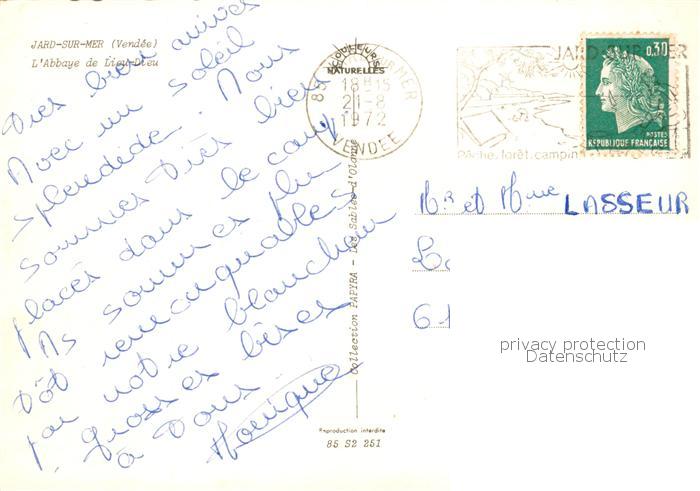 JARD-SUR-MER (Vendée)
L'Abbaye de Lieu-Dieu
Très bien arrivés
Avec un soleil
splendide. Nous
sommes très bien
placés dans le camp.
Ns sommes plu
tôt remarquables
par notre blancheur
grosses bises
à Vous
Monique
COULEURS
NATURELLES
85 JARD-SUR-MER
18H15
21-8
1972
VENDEE
JARD SUR MER
Pêche, forêt, campin
0,30
POSTES
REPUBLIQUE FRANÇAISE
Mr et Mme LASSEUR
61
privacy protection
Datenschutz
Collection PAPYRA - Les Sables-d'Olonne
Reproduction interdite
85 S2 251